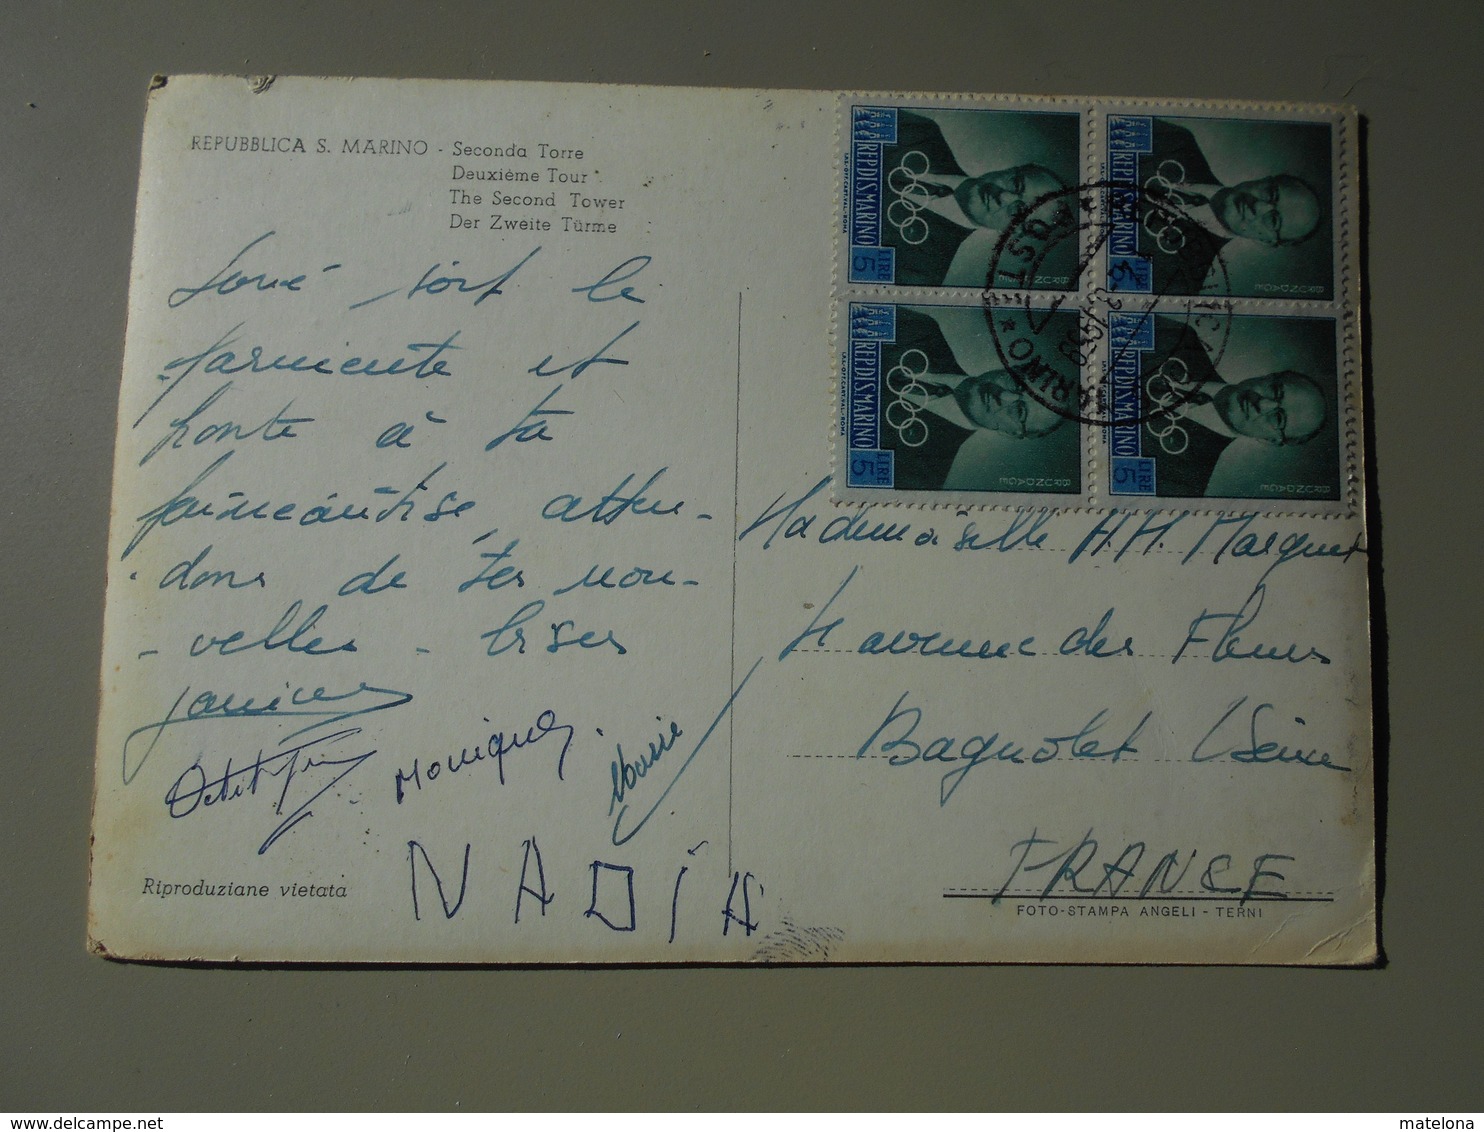 REPUBBLICA S. MARINO - Seconda Torre
Deuxiéme Tour
The Second Tower
Der Zweite Türme
Loué soit le
farniente et
honte à ta
fainéantise, atten-
dons de tes nou-
velles - Bises
Janine
Petit
Monique
NADIA
Riproduziane vietata
REP.DI S.MARINO
LIRE 5
BRUNDAGE
REP.DI S.MARINO
LIRE 5
BRUNDAGE
REP.DI S.MARINO
LIRE 5
BRUNDAGE
REP.DI S.MARINO
LIRE 5
BRUNDAGE
1959
Mademoiselle M.H. Marquet
avenue des Fleurs
Bagnolet (Seine
FRANCE
FOTO-STAMPA ANGELI - TERNI
matelona